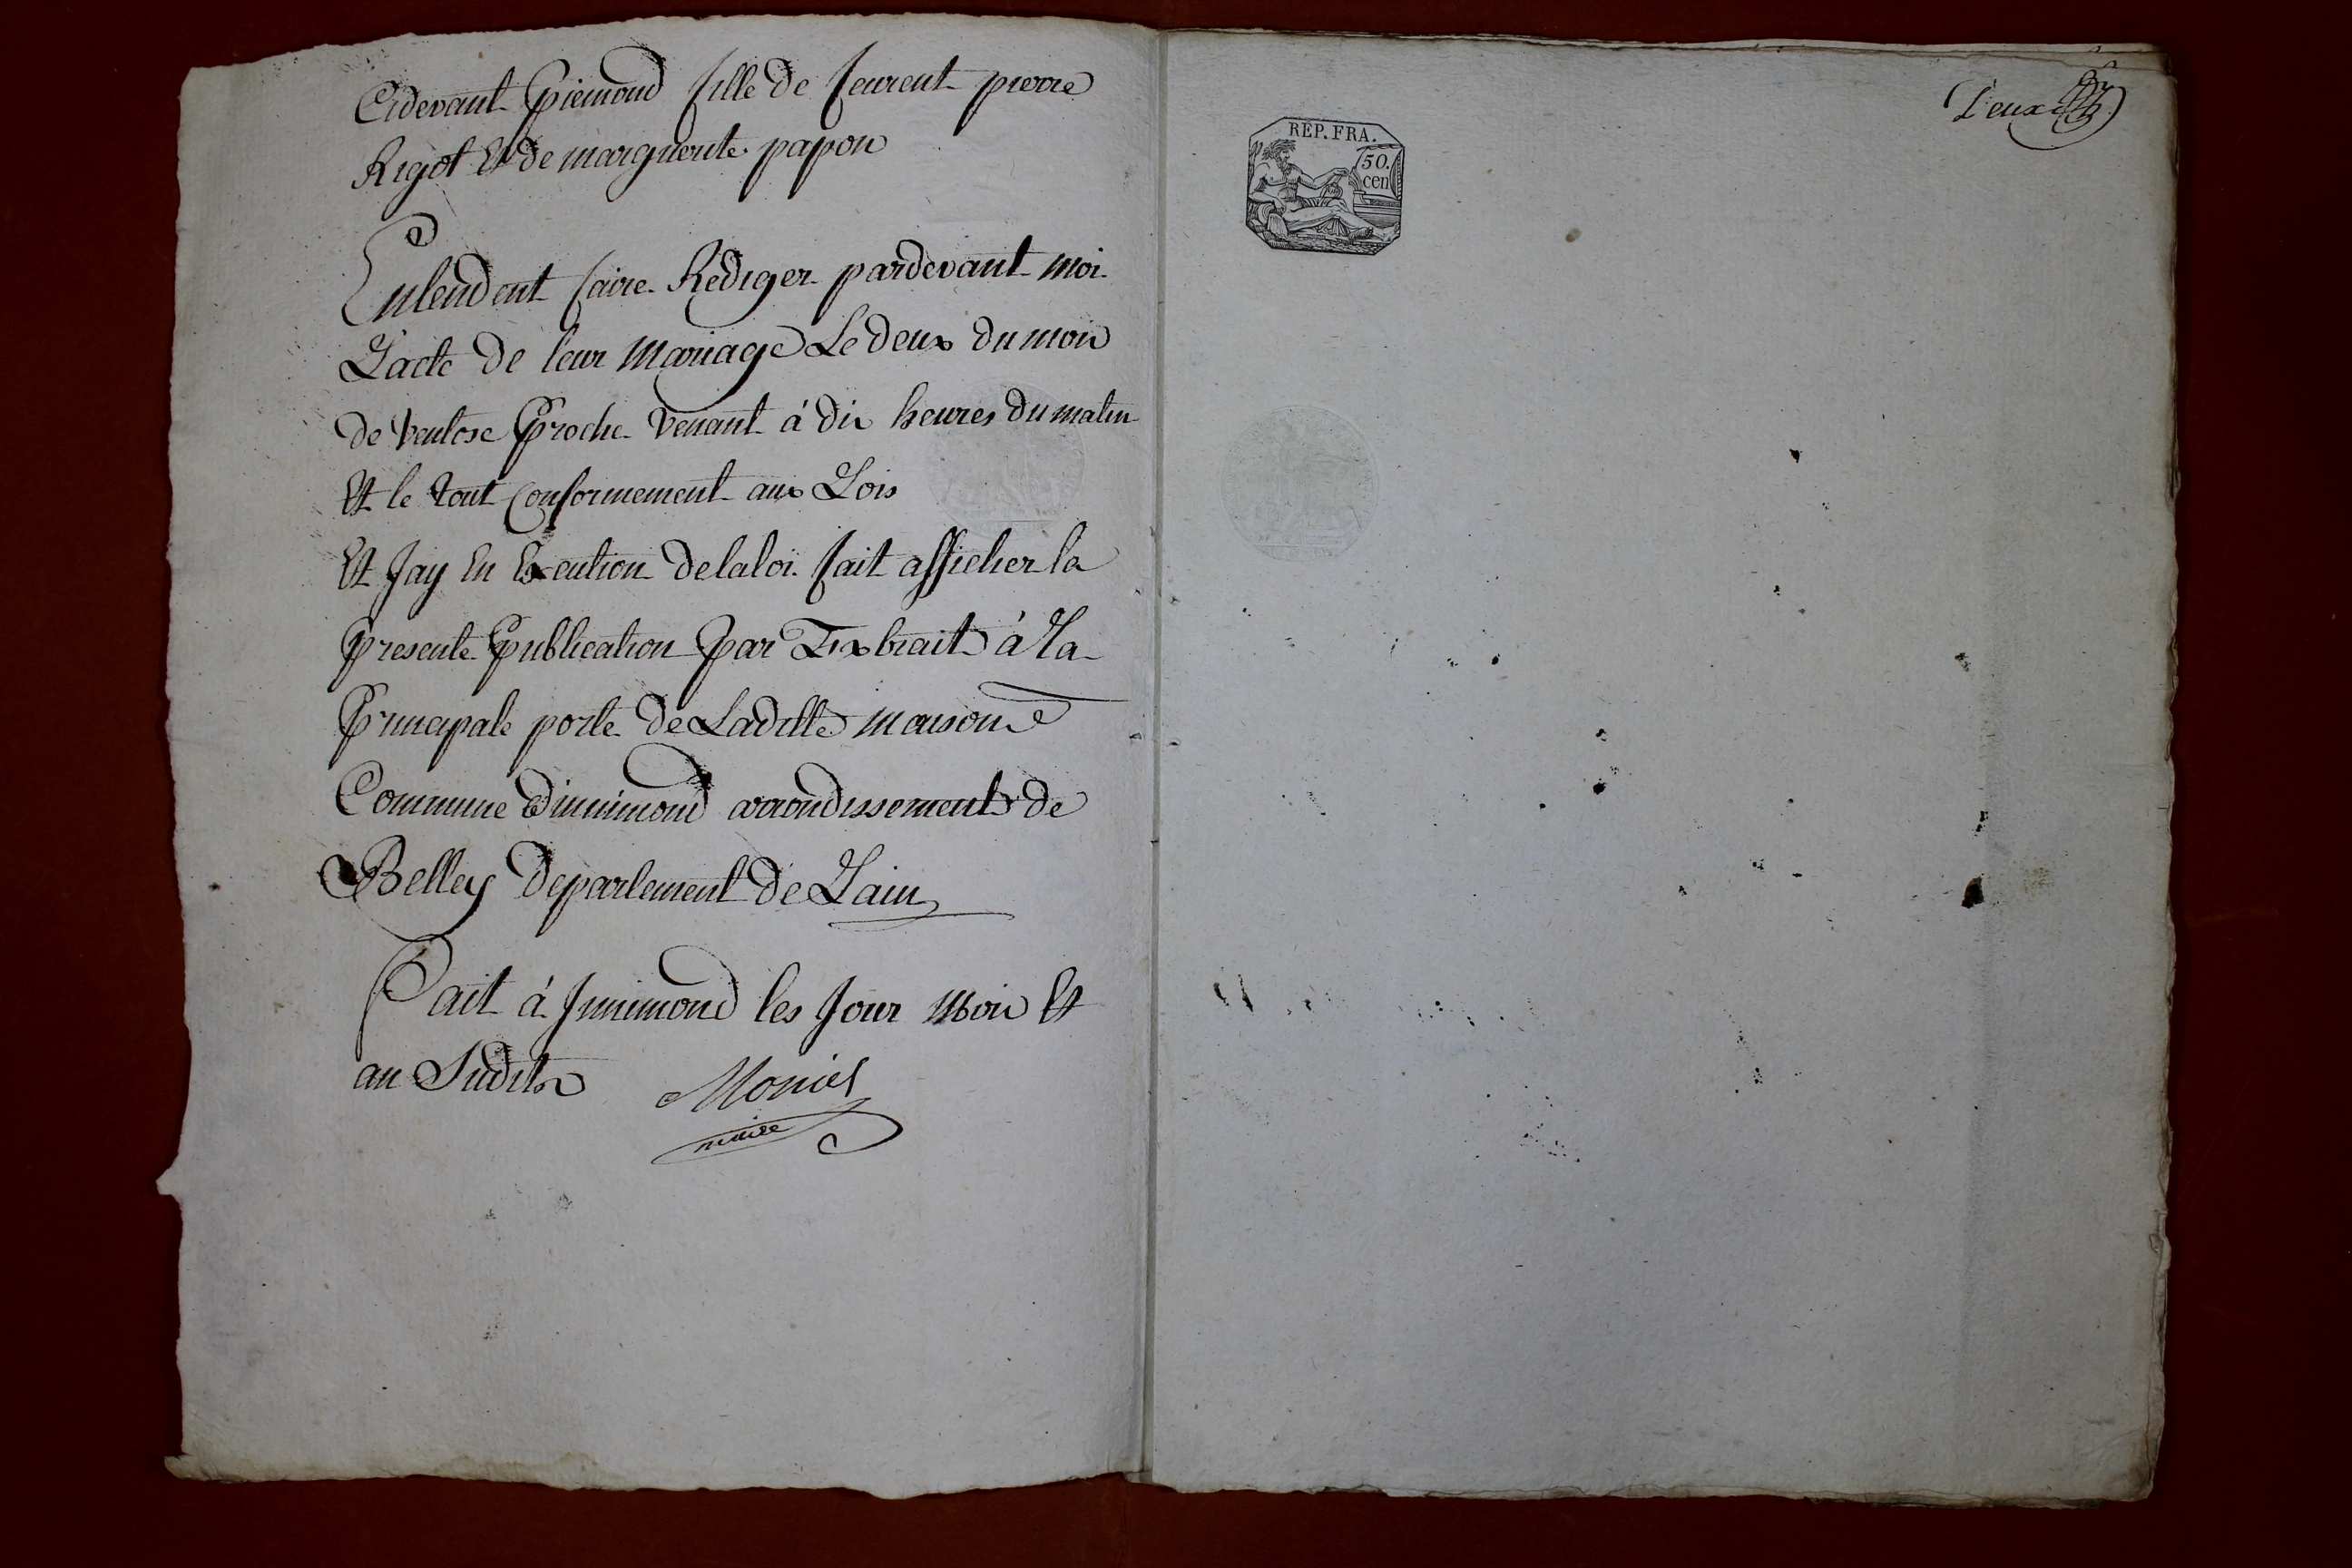 Cidevant Piemond fille de feurent pierre
Rigot Et de marguerite papon
Entendent faire Rediger pardevant moi
L'acte de leur Mariage Le deux du mois
de Ventose Proche Venant à dix heures du matin
Et le tout Conformement aux Lois
Et Jay En Execution de la loi fait afficher la
Presente Publication Par Extrait à La
Principale porte de Ladille maison
Commune d'innimond arrondissement de
Belley Departement de Lain
Fait à Innimond les Jour Mois Et
an Sudits Moniet
maire
REP. FRA.
50.
cen
Deux